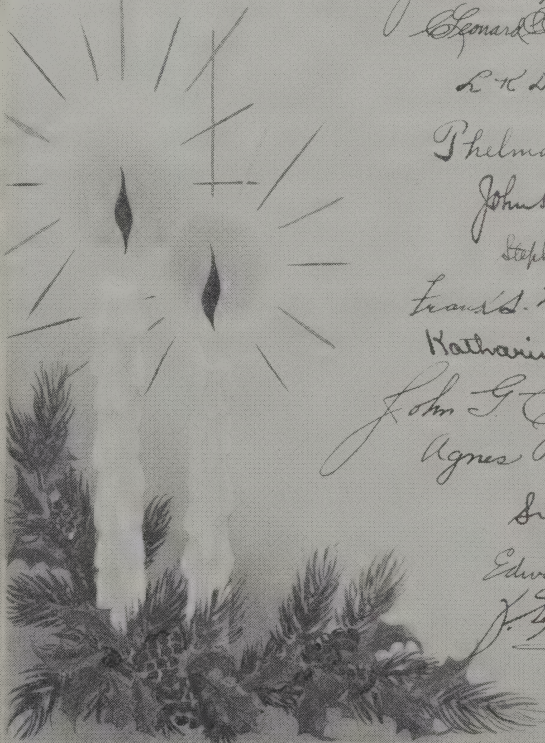 Leonard
L K
Thelma
John
Steph
Frank S.
Katharin
John G
Agnes
Edw